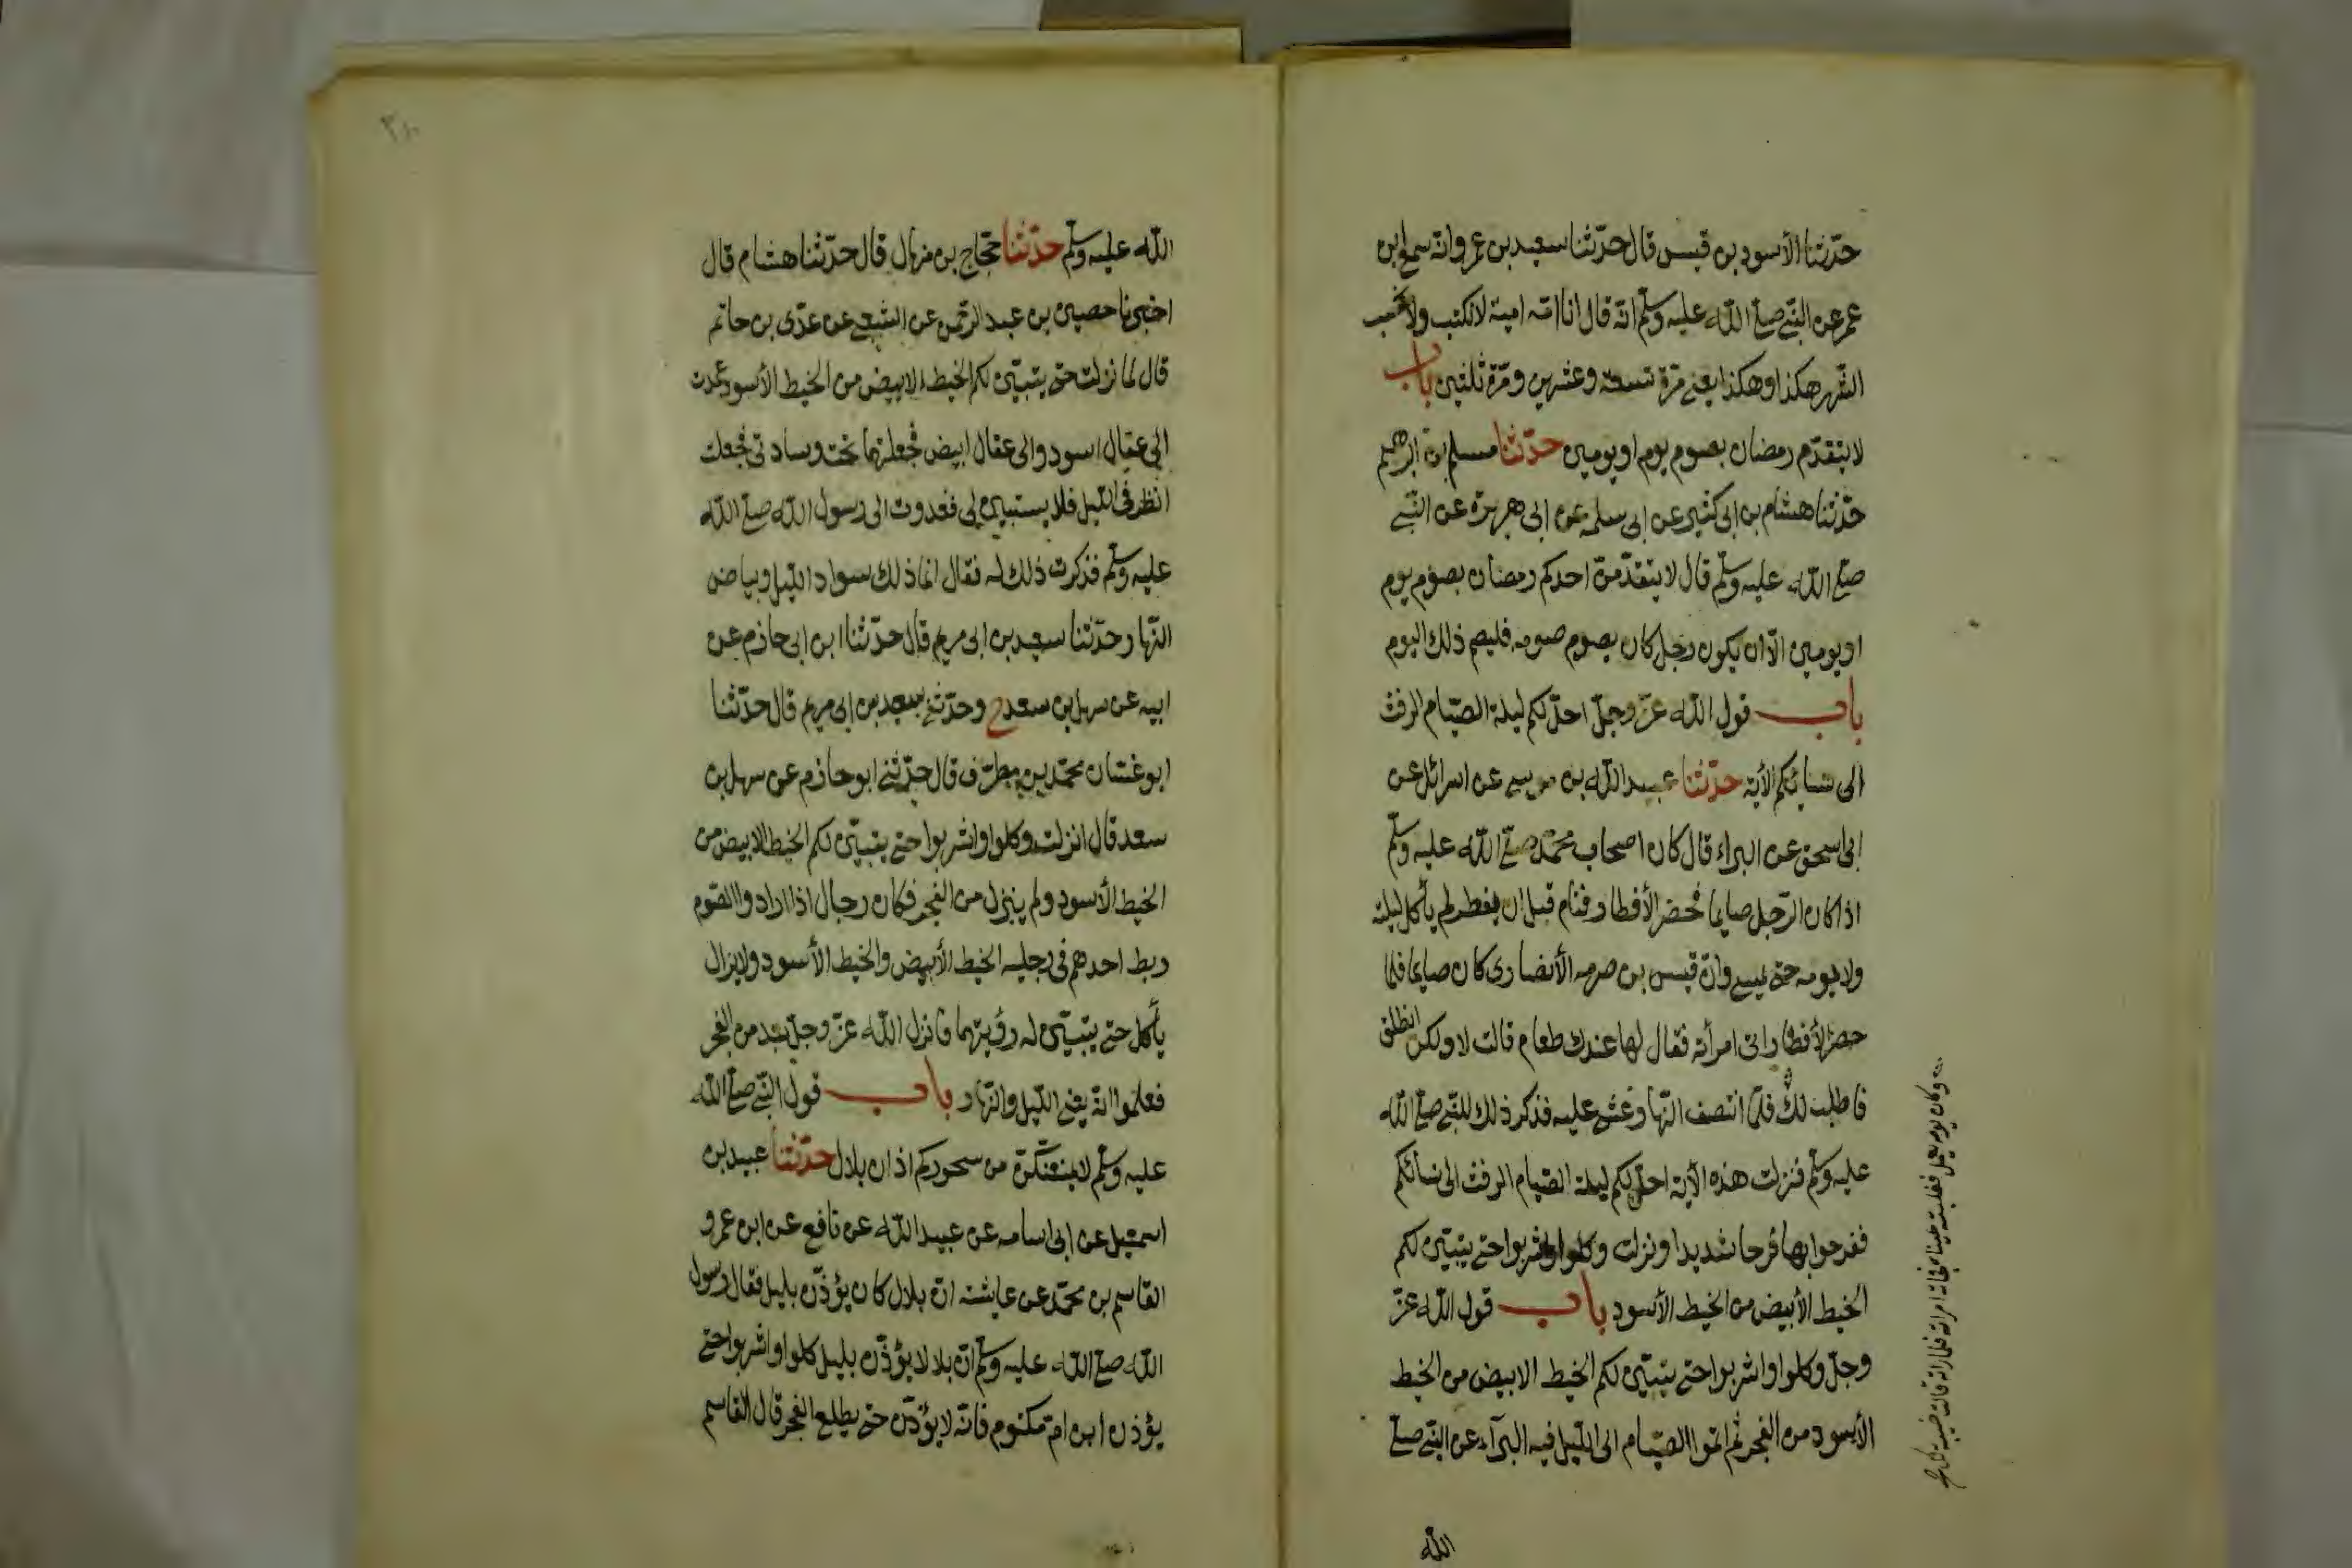 حدّثنا الأسود بن قيس قال حدّثنا سعيد بن عمرو انّه سمع ابن
عمر عن النّبى صلّى الله عليه وسلّم انّه قال انا امّة امية لا نكتب ولا نحسب
الشّهر هكذا وهكذا يعنى مرّة تسعة وعشرين ومرّة ثلثين باب
لا يتقدّم رمضان بصوم يوم او يومين حدّثنا مسلم بن ابرهيم
حدّثنا هشام بن ابى كثير عن ابى سلمه عن ابى هريرة عن النّبى
صلّى الله عليه وسلّم قال لا يتقدّمنّ احدكم رمضان بصوم يوم
او يومين الّا ان يكون رجل كان يصوم صومه فليصم ذلك اليوم
باب قول الله عزّ وجلّ احلّ لكم ليلة الصّيام الرفث
الى نسائكم الأية حدّثنا عبيد الله بن موسى عن اسرائل عن
ابى اسحق عن البراء قال كان اصحاب محمّد صلّى الله عليه وسلّم
اذا كان الرّجل صايما فحضر الأفطار فنام قبل ان يفطر لم يأكل ليلته
ولا يومه حتى يمسى وانّ قيس بن صرمه الأنصارى كان صايما فلما
حضر الأفطار اتى امرأته فقال لها عندك طعام قالت لا ولكن انطلق
فاطلب لك فلمّا انتصف النّهار غشى عليه فذكر ذلك للنّبى صلّى الله
عليه وسلّم فنزلت هذه الأية احلّ لكم ليلة الصّيام الرفث الى نسائكم
ففرحوا بها فرحا شديدا ونزلت وكلوا واشربوا حتى يتبيّن لكم
الخيط الأبيض من الخيط الأسود باب قول الله عزّ
وجلّ وكلوا واشربوا حتى يتبيّن لكم الخيط الابيض من الخيط
الأسود من الفجر ثم اتموا الصّيام الى اللّيل فيه البرآء عن النّبى صلّى
الله
وكان يومه يعمل فغلبته عيناه فجاءته امراته فلما راته قالت خيبة لك صح
الله عليه وسلّم حدّثنا حجّاج بن منهال قال حدّثنا هشام قال
اخبرنا حصين بن عبد الرّحمن عن الشّعبى عن عدّى بن حاتم
قال لما نزلت حتى يتبيّن لكم الخيط الابيض من الخيط الأسود عمدت
الى عقال اسود والى عقال ابيض فجعلتهما تحت وسادتى فجعلت
انظر فى اللّيل فلا يستبين لى فغدوت الى رسول الله صلّى الله
عليه وسلّم فذكرت ذلك له فقال انما ذلك سواد اللّيل وبياض
النّهار وحدّثنا سعيد بن ابى مريم قال حدّثنا ابن ابى حازم عن
ابيه عن سهل بن سعد ح وحدّثنى سعيد بن ابى مريم قال حدّثنا
ابو غسّان محمّد بن مطرّف قال حدّثنى ابو حازم عن سهل بن
سعد قال انزلت وكلوا واشربوا حتى يتبيّن لكم الخيط الابيض من
الخيط الأسود ولم ينزل من الفجر فكان رجال اذا ارادوا الصّوم
ربط احدهم فى رجليه الخيط الأبيض والخيط الأسود ولا يزال
يأكل حتى يتبيّن له رؤيتهما فانزل الله عزّ وجلّ بعد من الفجر
فعلموا انّه يعنى اللّيل والنّهار باب قول النّبى صلّى الله
عليه وسلّم لا يمنعنّكم من سحوركم اذان بلال حدّثنا عبيد بن
اسمعيل عن ابى اسامه عن عبيد الله عن نافع عن ابن عمر و
القاسم بن محمّد عن عايشة انّ بلال كان يؤذّن بليل فقال رسول
الله صلّى الله عليه وسلّم انّ بلالا يؤذّن بليل كلوا واشربوا حتى
يؤذن ابن امّ مكتوم فانّه لا يؤذّن حتى يطلع الفجر قال القاسم